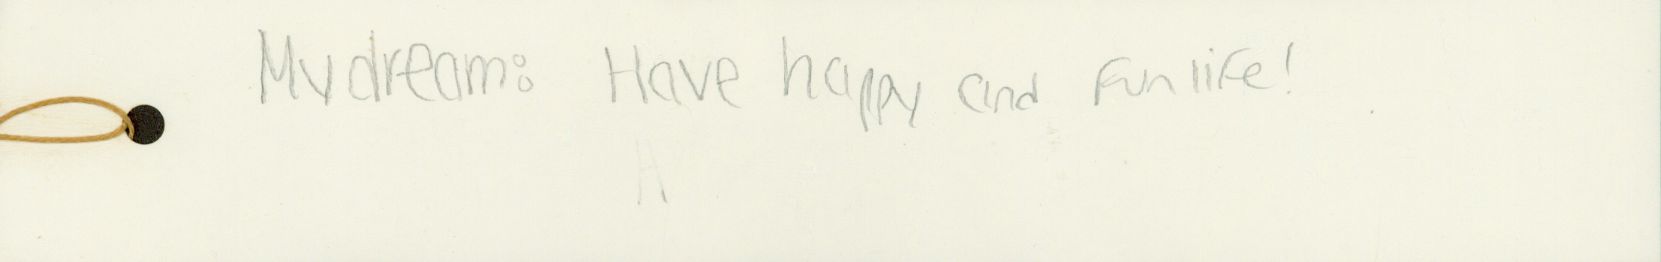 My dream: Have happy and Fun life!
A